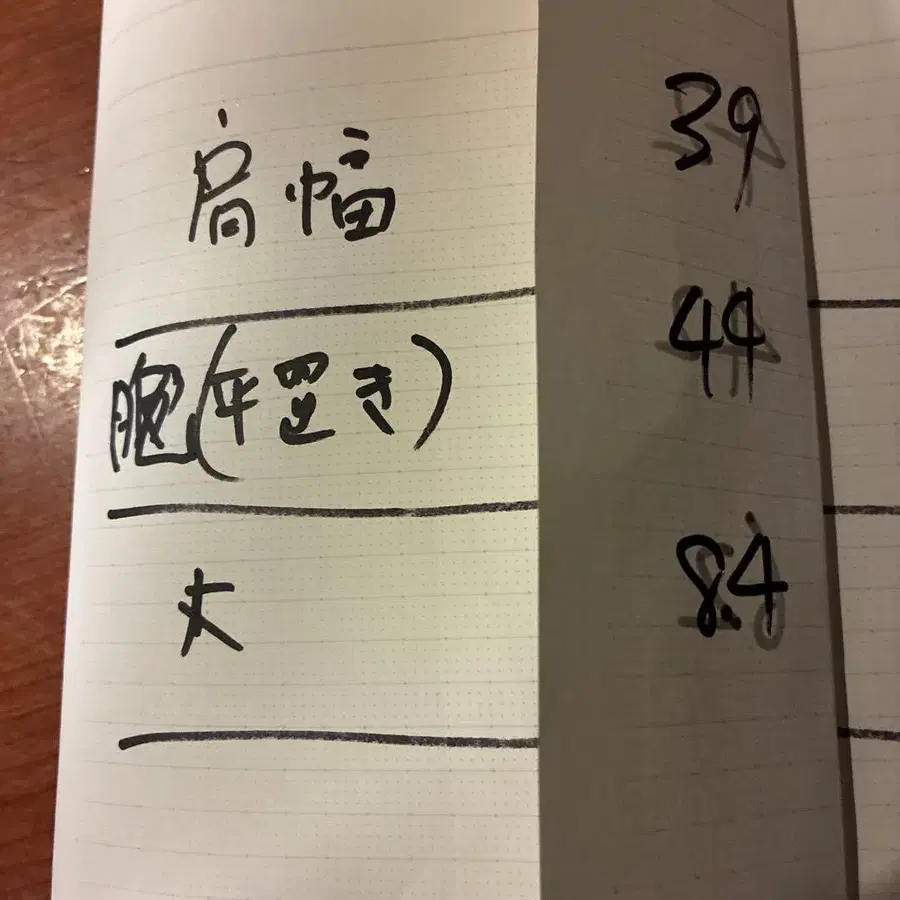 肩幅 39
胸(平置き) 44
丈 8.4